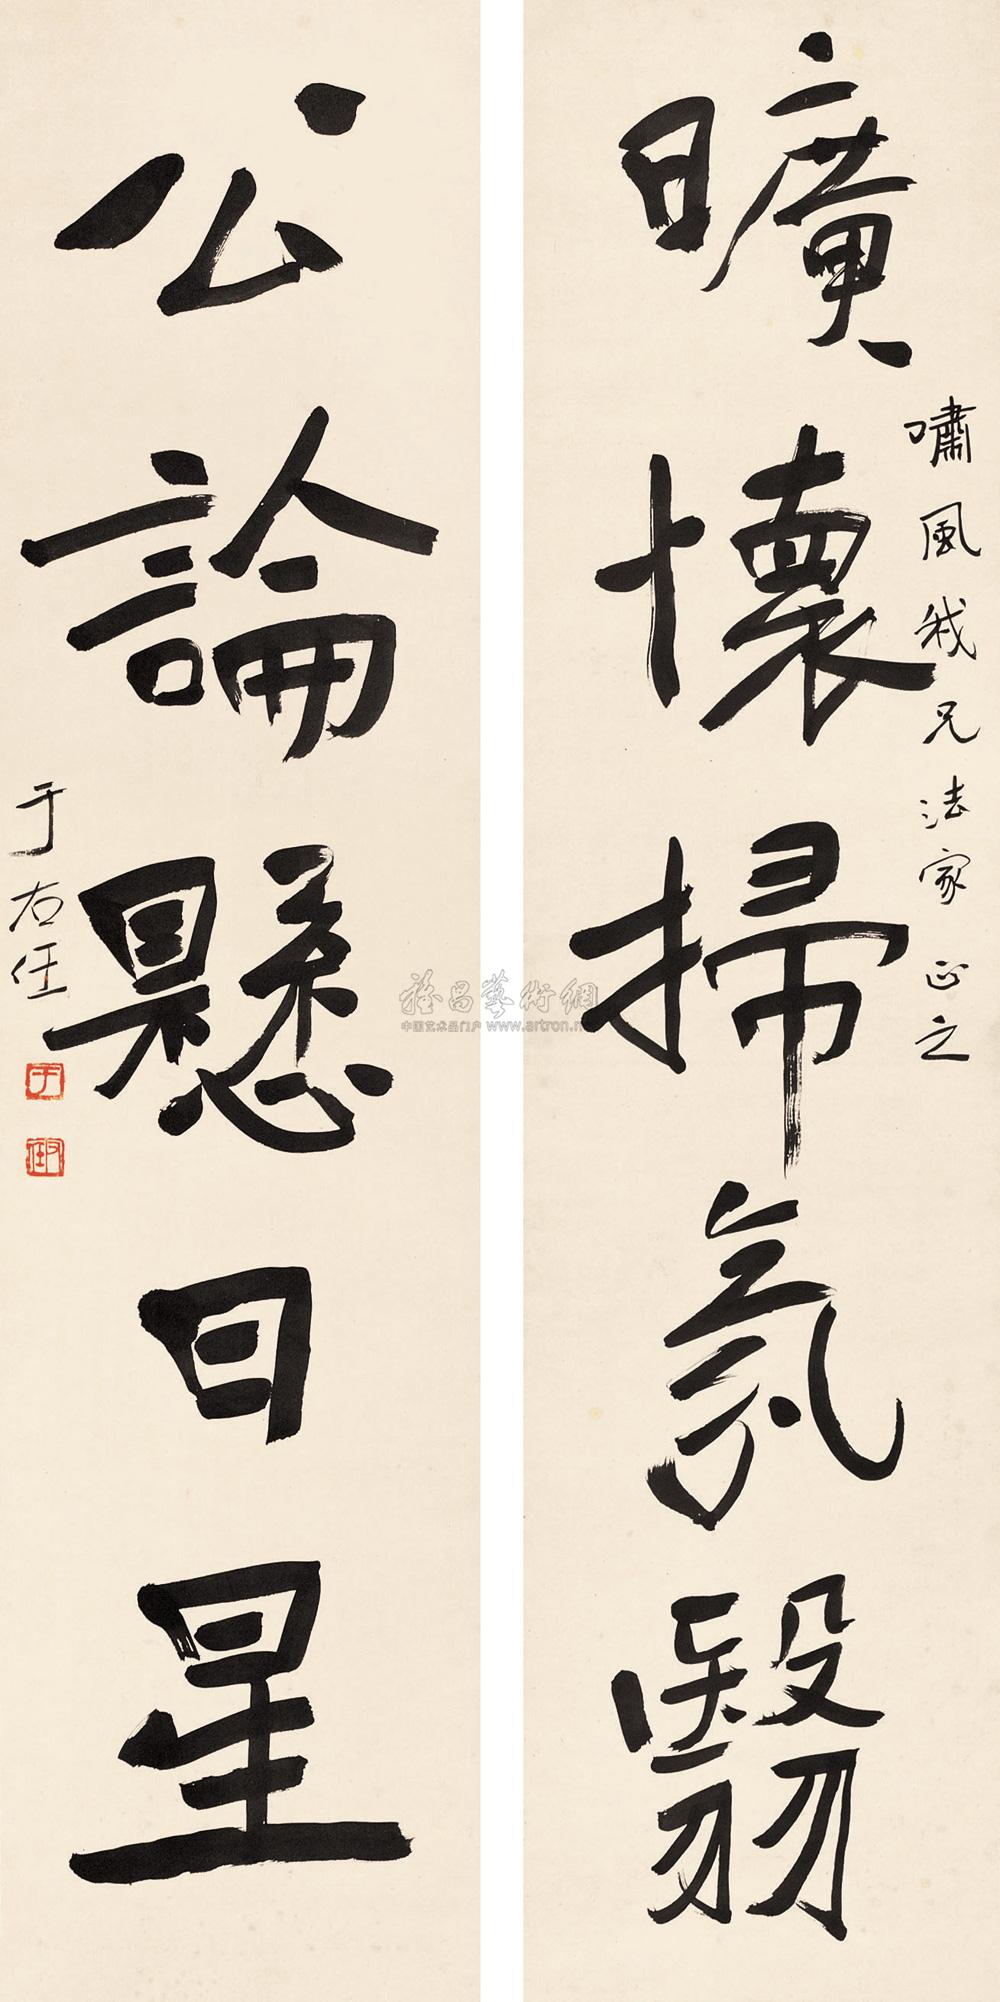 曠懷掃氛翳
嘯風我兄法家正之
公論懸日星
于右任
雅昌藝術網
中国艺术品门户 www.artron.n